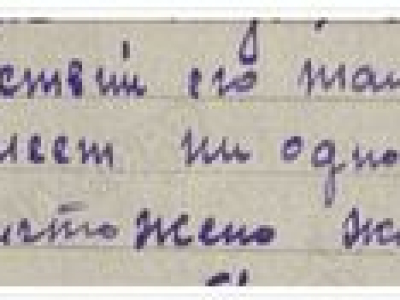 ствий его та
меет ни одно
ичто жено ж